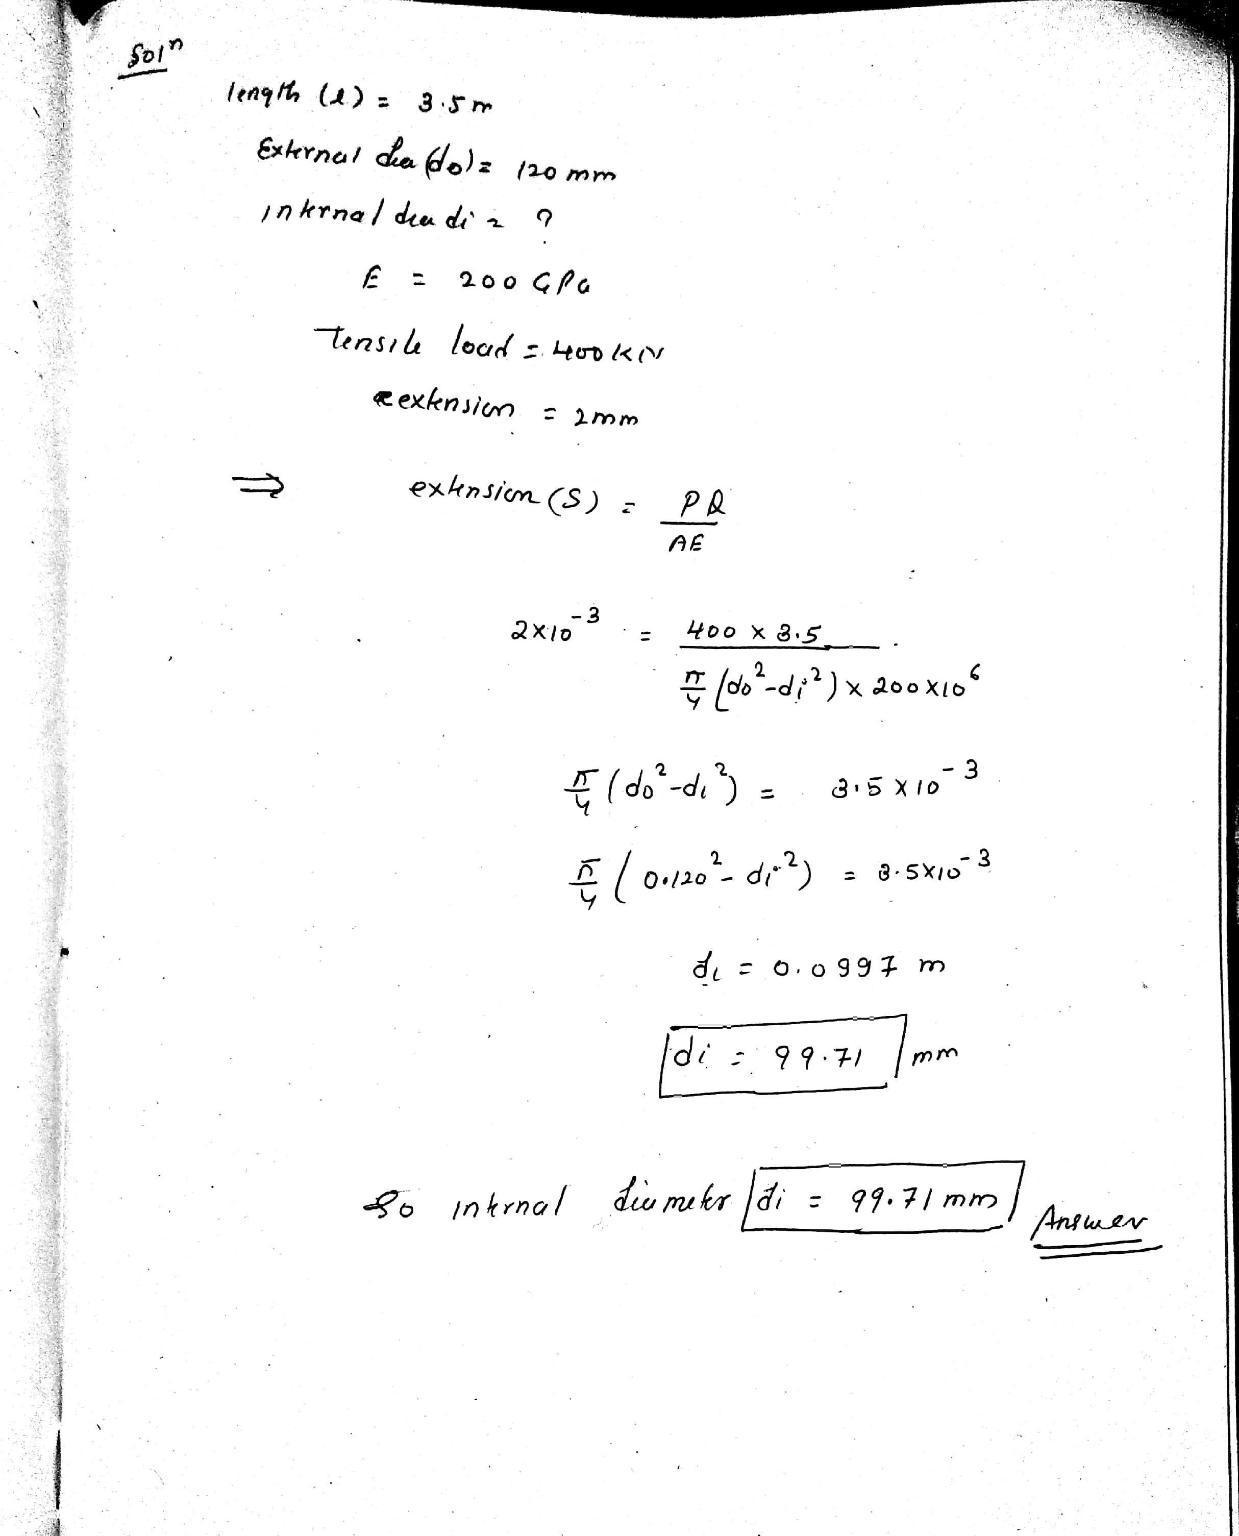 Solⁿ
length (l) = 3.5 m
External dia (do) = 120 mm
internal dia di = ?
E = 200 GPa
Tensile load = 400 kN
extension = 2mm
⇒ extension (S) = Pl / AE
2×10⁻³ = 400 × 3.5 / π/4 (do²-di²) × 200×10⁶
π/4 (do²-di²) = 3.5 × 10⁻³
π/4 (0.120² - di²) = 3.5×10⁻³
di = 0.0997 m
di = 99.71 mm
So internal diameter di = 99.71 mm Answer